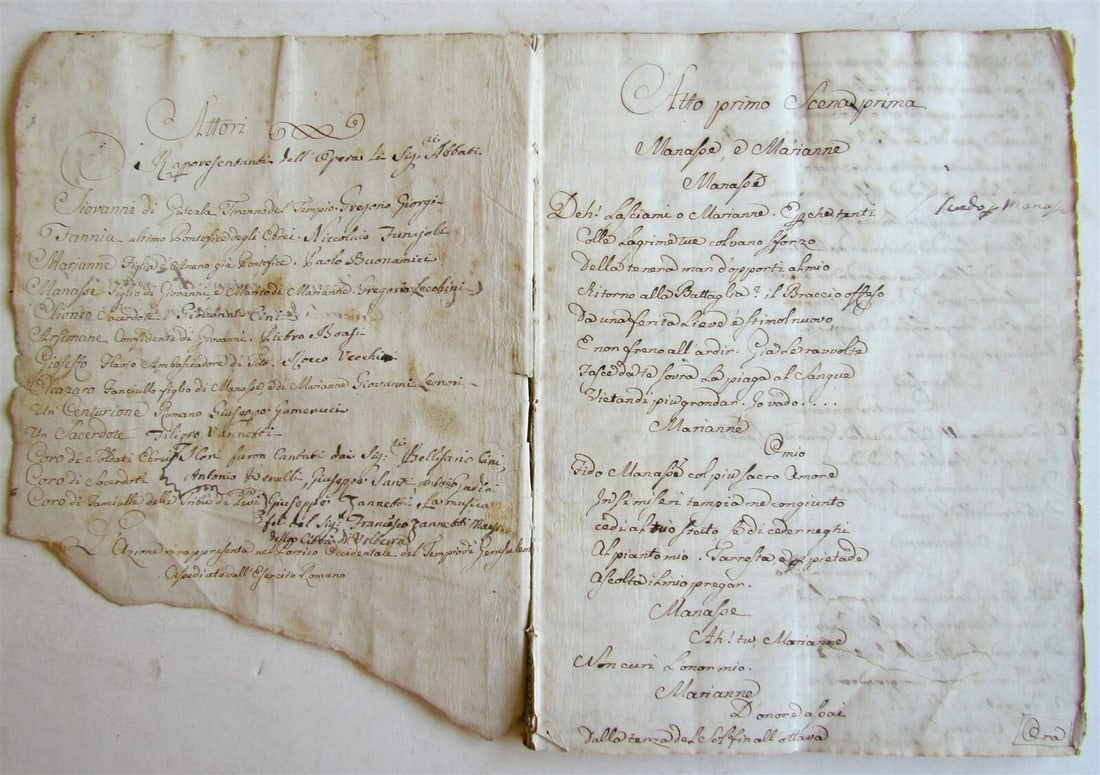 Attori
Rappresentanti dell'Opera Le Sig.ri Abbati.
Giovanni di Giscala Tiranno del Tempio. Gregorio Giorgi
Fannia ultimo Pontefice degli Ebrei. Niccolaio Funajoli
Marianne Figlia d'Anano già Pontefice. Paolo Buonamici
Manasse Figlio di Giovanni, e Marito di Marianne. Gregorio Lecchini
Sacerdote. Giovanni Cini
Arsimane Confidente di Giovanni. Pietro Boasi
Gioseffo Flavio Ambasciadore di Tito. Rocco Vecchi
Eleazaro Fanciullo figlio di Manasse, e di Marianne Giovanni Lenori.
Un Centurione Romano Giuseppe Gamerucci
Un Sacerdote Filippo Vannetti
Coro di Soldati Ebrei I Cori furon Cantati dai Sig.ri Bellisario Cini,
Coro di Sacerdoti Antonio Giuseppe
Coro di Fanciulli della Tribù di Levi Giuseppe Zannetti. La musica
fù del Sig.r Francesco Zannetti Maestro
di Città di Volterra
L'Azione si rappresenta nel Portico Occidentale del Tempio di Gerusalem
Assediata dall'Esercito Romano
Atto primo Scena prima
Manasse, e Marianne
Manasse
Deh! Lasciami o Marianne. E che tenti
Colle Lagrime tue col vano sforzo
Della tenera man d'opporti al mio
Ritorno alla Battaglia? il Braccio offeso
Da una ferita Lieve è stimol nuovo
E non freno all'ardir. Già che ravvolte
Fasce da te sovra La piaga al Sangue
Vietan di più grondar. Io vado....
Marianne
O mio
Fido Manasse col più sacro Amore
In sì miseri tempi a me congiunto
cedi al tuo Se di ceder neghi
Al pianto mio. T'arresta, e pietade
Ascolta il mio pregar.
Manasse
Ah! tu, Marianne
Non curi L'onor mio.
Marianne
D'onore assai
Dalla terza del Sol fin all'ottava
Ora